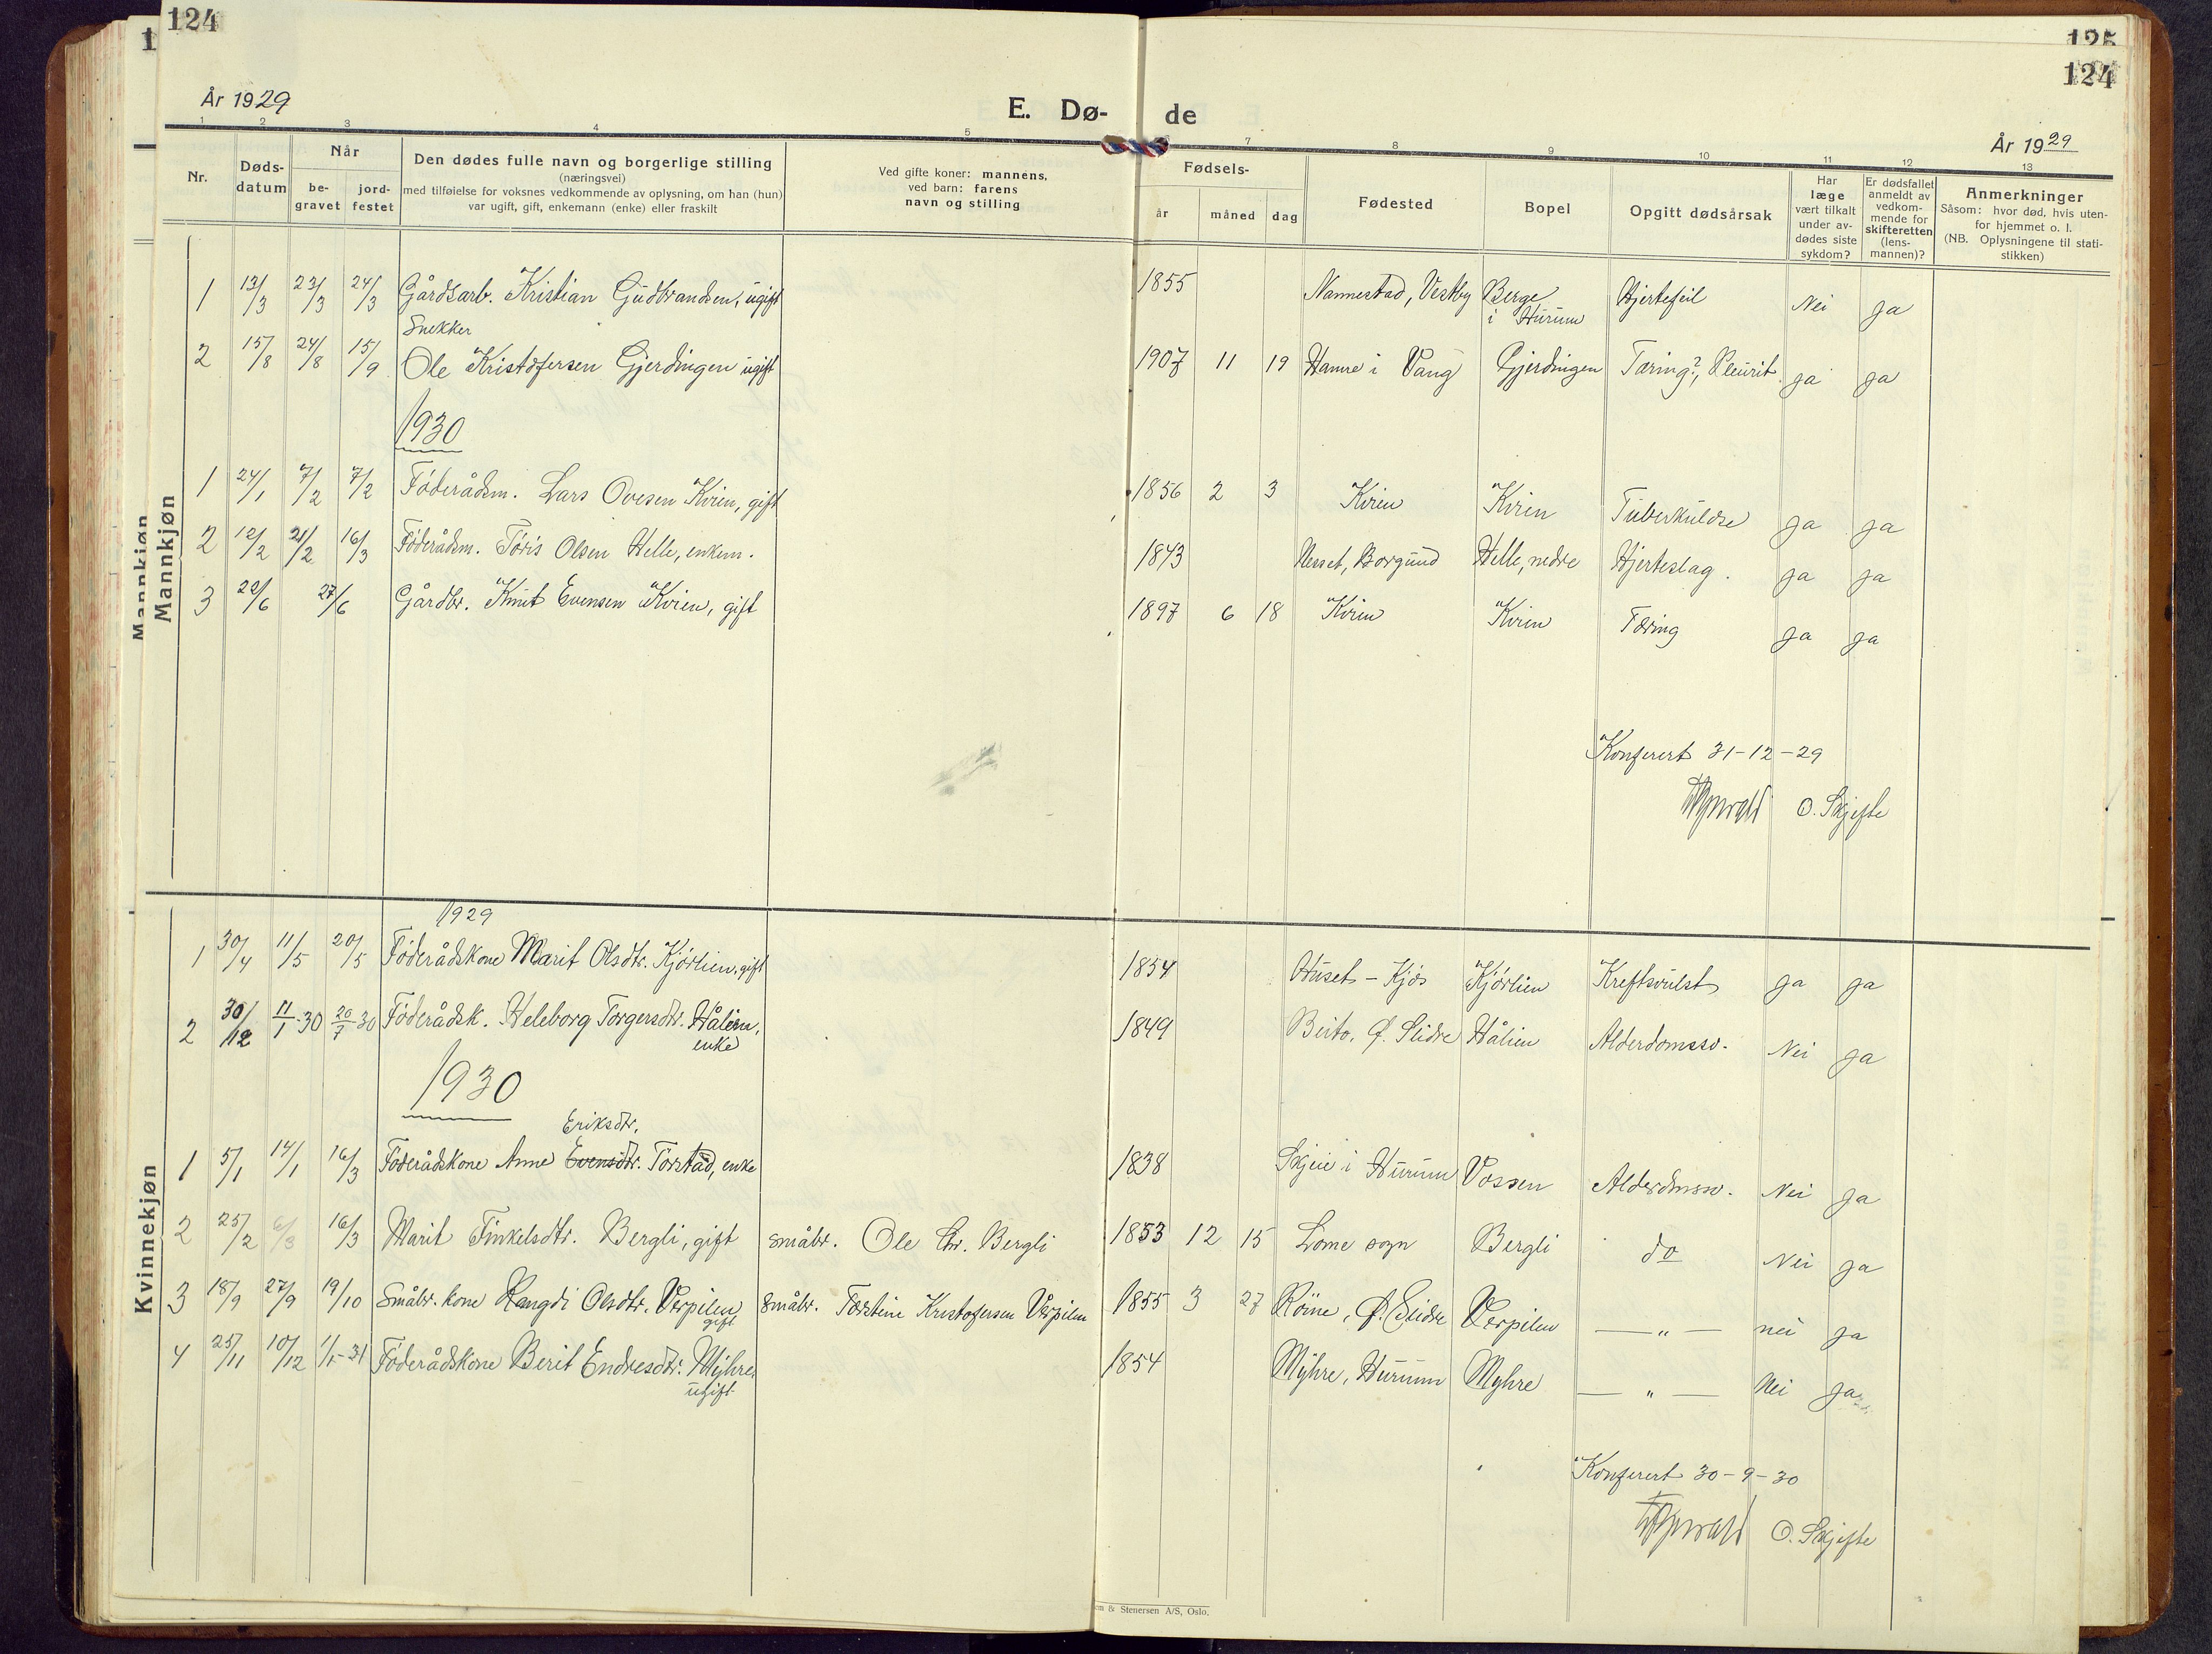 124
1
125
124
År 1929
E. Dø-
de
År 1929
1 2 3 4 5 7 8 9 10 11 12 13
Nr.
Døds-
datum
Når
be-
gravet
jord-
festet
Den dødes fulle navn og borgerlige stilling
(næringsvei)
med tilføielse for voksnes vedkommende av oplysning, om han (hun)
var ugift, gift, enkemann (enke) eller fraskilt
Ved gifte koner: mannens,
ved barn: farens
navn og stilling
Fødsels-
år måned dag
Fødested
Bopel
Opgitt dødsårsak
Har
læge
vært tilkalt
under av-
dødes siste
sykdom?
Er dødsfallet
anmeldt av
vedkom-
mende for
skifteretten
(lens-
mannen)?
Anmerkninger
Såsom: hvor død, hvis uten-
for hjemmet o. l.
(NB. Oplysningene til stati-
stikken)
Mannkjøn
Mannkjøn
1 13/3 23/3 24/3 Gårdsarb. Kristian Gudbrandsen, ugift 1855 Nannestad, Vestby Berge i Hurum Hjertefeil Nei Ja
Snekker
2 15/8 24/8 15/9 Ole Kristofersen Gjerdingen ugift 1907 11 19 Hamre i Vang Gjerdingen Tæring?, Pleurit Ja Ja
1930
1 24/1 7/2 7/2 Føderådsm. Lars Ovesen Kvien, gift 1856 2 3 Kvien Kvien Tuberkulose Ja Ja
2 12/2 21/2 16/3 Føderådsm. Tøris Olsen Helle, enkem. 1843 Nesset, Borgund Helle, nedre Hjerteslag. Ja Ja
3 22/6 27/6 Gårdbr. Knut Evensen Kvien, gift 1897 6 18 Kvien Kvien Tæring Ja Ja
Konferert 31-12-29
O. Skjefte
Kvinnekjøn
1929
1 30/4 11/5 20/5 Føderådskone Marit Olsdtr. Kjørlien, gift 1854 Huset-Kjøs Kjørlien Kreftsvulst Ja Ja
2 30/12 11/1-30 20/7 30 Føderådsk. Heleborg Torgersdtr. Hålien, enke 1849 Beito, Ø. Slidre Hålien Alderdomssv. Nei Ja
1930
Eriksdtr.
1 5/1 14/1 16/3 Føderådskone Anne Evensdtr. Torstad, enke 1838 Skjeie i Hurum Vossen Alderdmssv. Nei Ja
2 25/2 6/3 16/3 Marit Finkelsdtr. Bergli, gift småbr. Ole Chr. Bergli 1853 12 15 Lome sogn Bergli do Nei Ja
3 18/9 27/9 19/10 Småbr. kone Rangdi Olsdtr. Verpilen gift Småbr. Torsteine Kristofersen Verpilen 1855 3 27 Røine, Ø. Slidre Verpilen — „ — nei Ja
4 25/11 10/12 1/1-31 Føderådskone Berit Endresdtr. Myhre, ugift 1854 Myhre, Hurum Myhre — „ — Nei Ja
Konferert 30-9-30
O. Skjefte
& Stenersen A/S, Oslo.